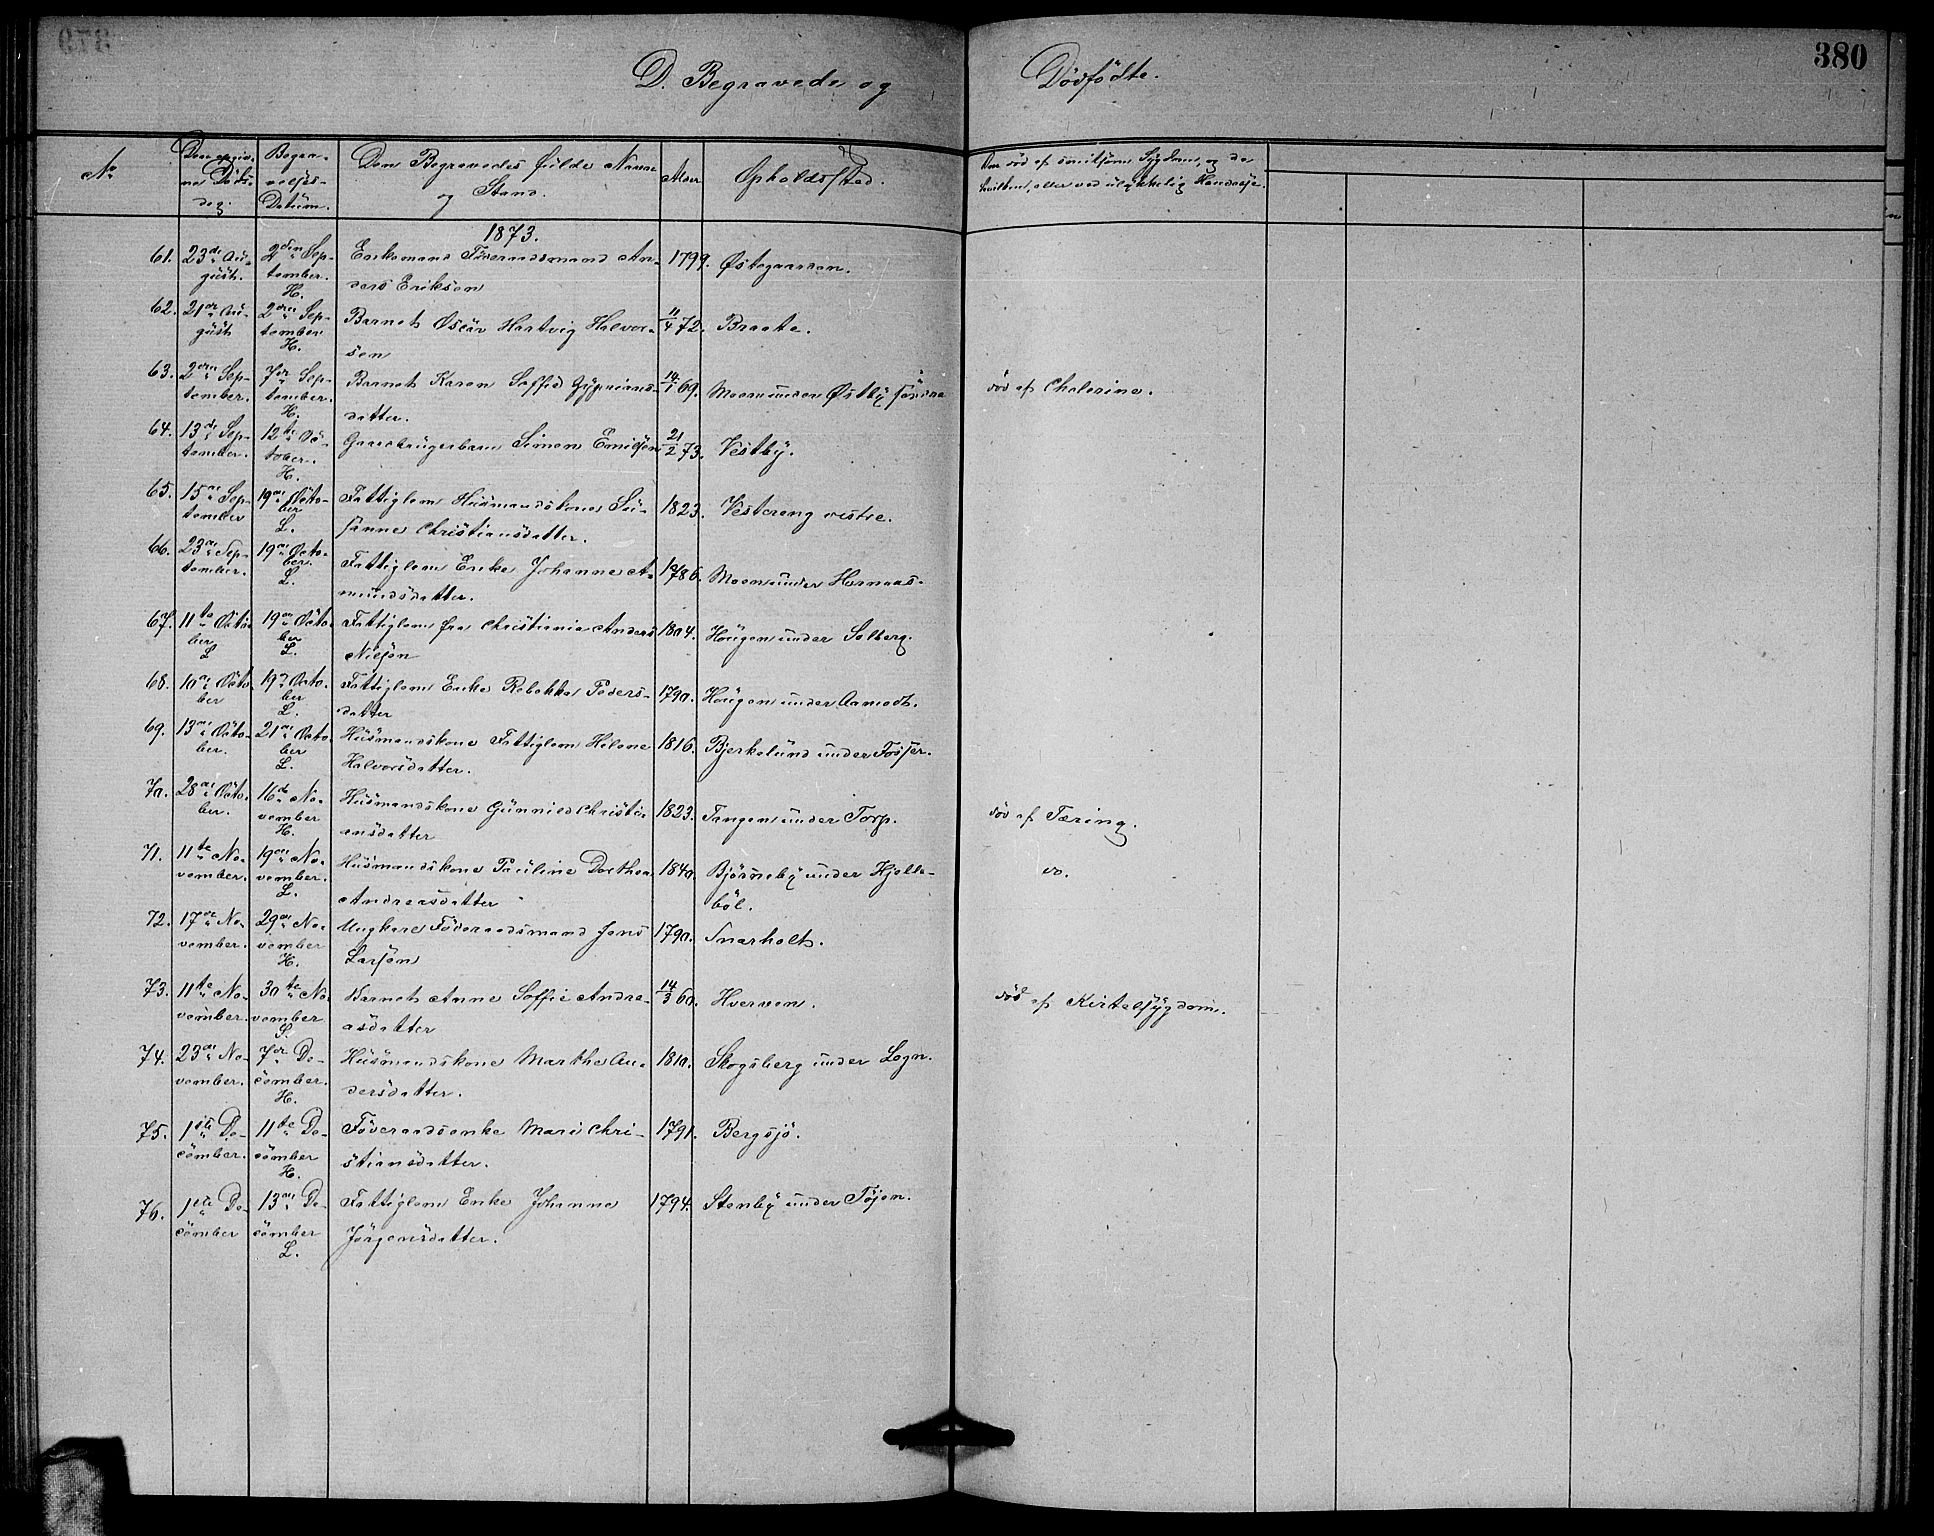 380
D. Begravede og Dødfødte.
No
Den opgivne Dødsdag.
Begravelses-Datum.
Den Begravedes fulde Navne og Stand.
Alder
Opholdssted.
Om død af smitsom Sygdom, og da hvilken, eller ved ulykkelig Hændelse.
1873.
61. 23de August. 2den September. H. Enkemand Føderaadsmand Anders Eriksen 1799. Østegaarden.
62. 21de August 2den September H. Barnet Oscar Hartvig Halvorsen 11/4 72. Braate.
63. 2den September. 7de September. H. Barnet Karen Soffie Gyprians datter. 14/1 69. Moen under Østby søndre død af Cholerine.
64. 13de September. 12te October. H. Gaardbrugerbarn Simen Emilsen 21/2 73. Vestby.
65. 15de September 19de October L. Fattiglem Husmandskone Susanne Christiansdatter. 1823. Vestereng vestre.
66. 23de September. 19de October. L. Fattiglem Enke Johanne Amundsdatter. 1786. Moen under Hornaas.
67. 11te October L 19de October L. Fattiglem fra Christiania Anders Nilsen 1804. Haugen under Solberg.
68. 10de October 19de October L. Fattiglem Enke Rebekka Pedersdatter 1790. Haugen under Aamodt.
69. 13de October. 21de October L. Husmandskone Fattiglem Helene Halvorsdatter. 1816. Bjerkelund under Fosser.
70. 28de October. 16de November H. Husmandskone Gunnild Christiansdatter 1823. Tangen under Torp. død af Tæring.
71. 11te November. 19de November. L. Husmandskone Pauline Dorthea Andreasdatter 1840. Bjørneby under Hjellebøl. do.
72. 17de November. 29de November H. Ungkarl Føderaadsmand Jens Larsen 1790. Snarholt.
73. 11te November. 30te November S. Barnet Anne Soffie Andreasdatter 14/3 60. Hverven. død af Kirtelsygdom.
74. 23de November. 7de December. H. Husmandskone Marthe Andersdatter. 1810. Skogsberg under Logn.
75. 1ste December. 11te December H. Føderaadsenke Mari Christiansdatter. 1791. Bergsjø.
76. 1ste December 13de December L. Fattiglem Enke Johanne Jørgensdatter. 1794. Stenby under Tøjen.